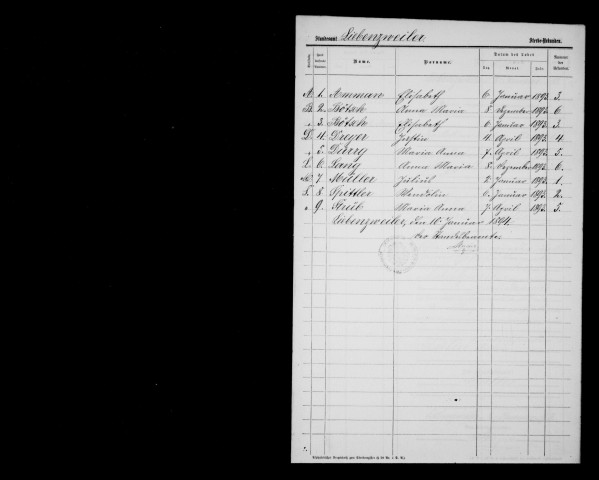 Standesamt Liebenzweiler Sterbe-Urkunden.
Name. Vorname. Datum des Todes Nummer der Urkunden.
Tag. Monat. Jahr.
A. 1. Ammann Elisabeth 6. Januar 1893. 3.
B. 2. Bötsch Anna Maria 8. Dezember 1893. 6.
" 3. Bötsch Elisabeth 6. Januar 1893. 3.
D. 4. Dreyer Justin 4. April 1893. 4.
" 5. Maria Anna 7. April 1893. 5.
L. 6. Lang Anna Maria 8. Dezember 1893. 6.
M. 7. Müller 2. Januar 1893. 1.
S. 8. Spittler Wendolin 6. Januar 1893. 2.
" 9. Maria Anna 7. April 1893. 5.
Liebenzweiler, den 10. Januar 1894.
Der Standesbeamte